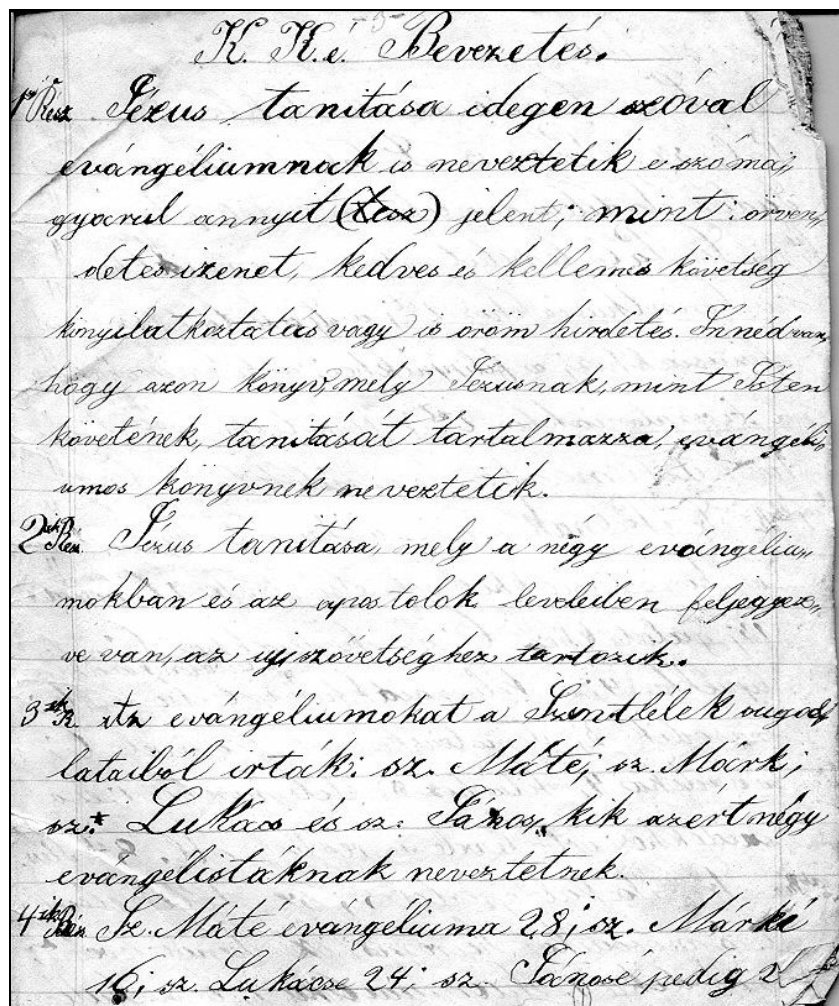 -3-
K. K. é. Bevezetés.
1ső Rész Jézus tanitása idegen szóval
evángéliumnak is neveztetik e szó ma„
gyarul annyit (tesz) jelent; mint: örven„
detes izenet, kedves és kellemes követség
kinyilatkoztatás vagy is öröm hirdetés. Innéd van,
hogy azon könyv, mely Jézusnak, mint Isten
követének, tanitását tartalmazza, evángéli„
umos könyvnek neveztetik.
2ik Rész. Jézus tanitása, mely a négy evángéliu„
mokban és az apostolok leveleiben feljegyez„
ve van, az uj szövetséghez tartozik.
3ik R. Az evángéliumokat a Szentlélek sugal„
lataiból irták: sz. Máté; sz. Márk;
sz. Lukács és sz: János, kik azért négy
evángélistáknak neveztetnek.
4ik Rész Sz. Máté evángéliuma 28; sz. Márké
16; sz. Lukácsé 24; sz. Jánosé pedig